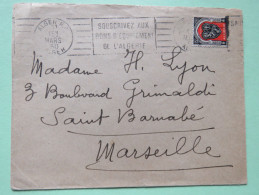 ALGER R.P.
MARS
SOUSCRIVEZ AUX
BONS D'EQUIPEMENT
DE L'ALGERIE
Madame H. Lyon
3 Boulevard Grimaldi
Saint Barnabé
Marseille